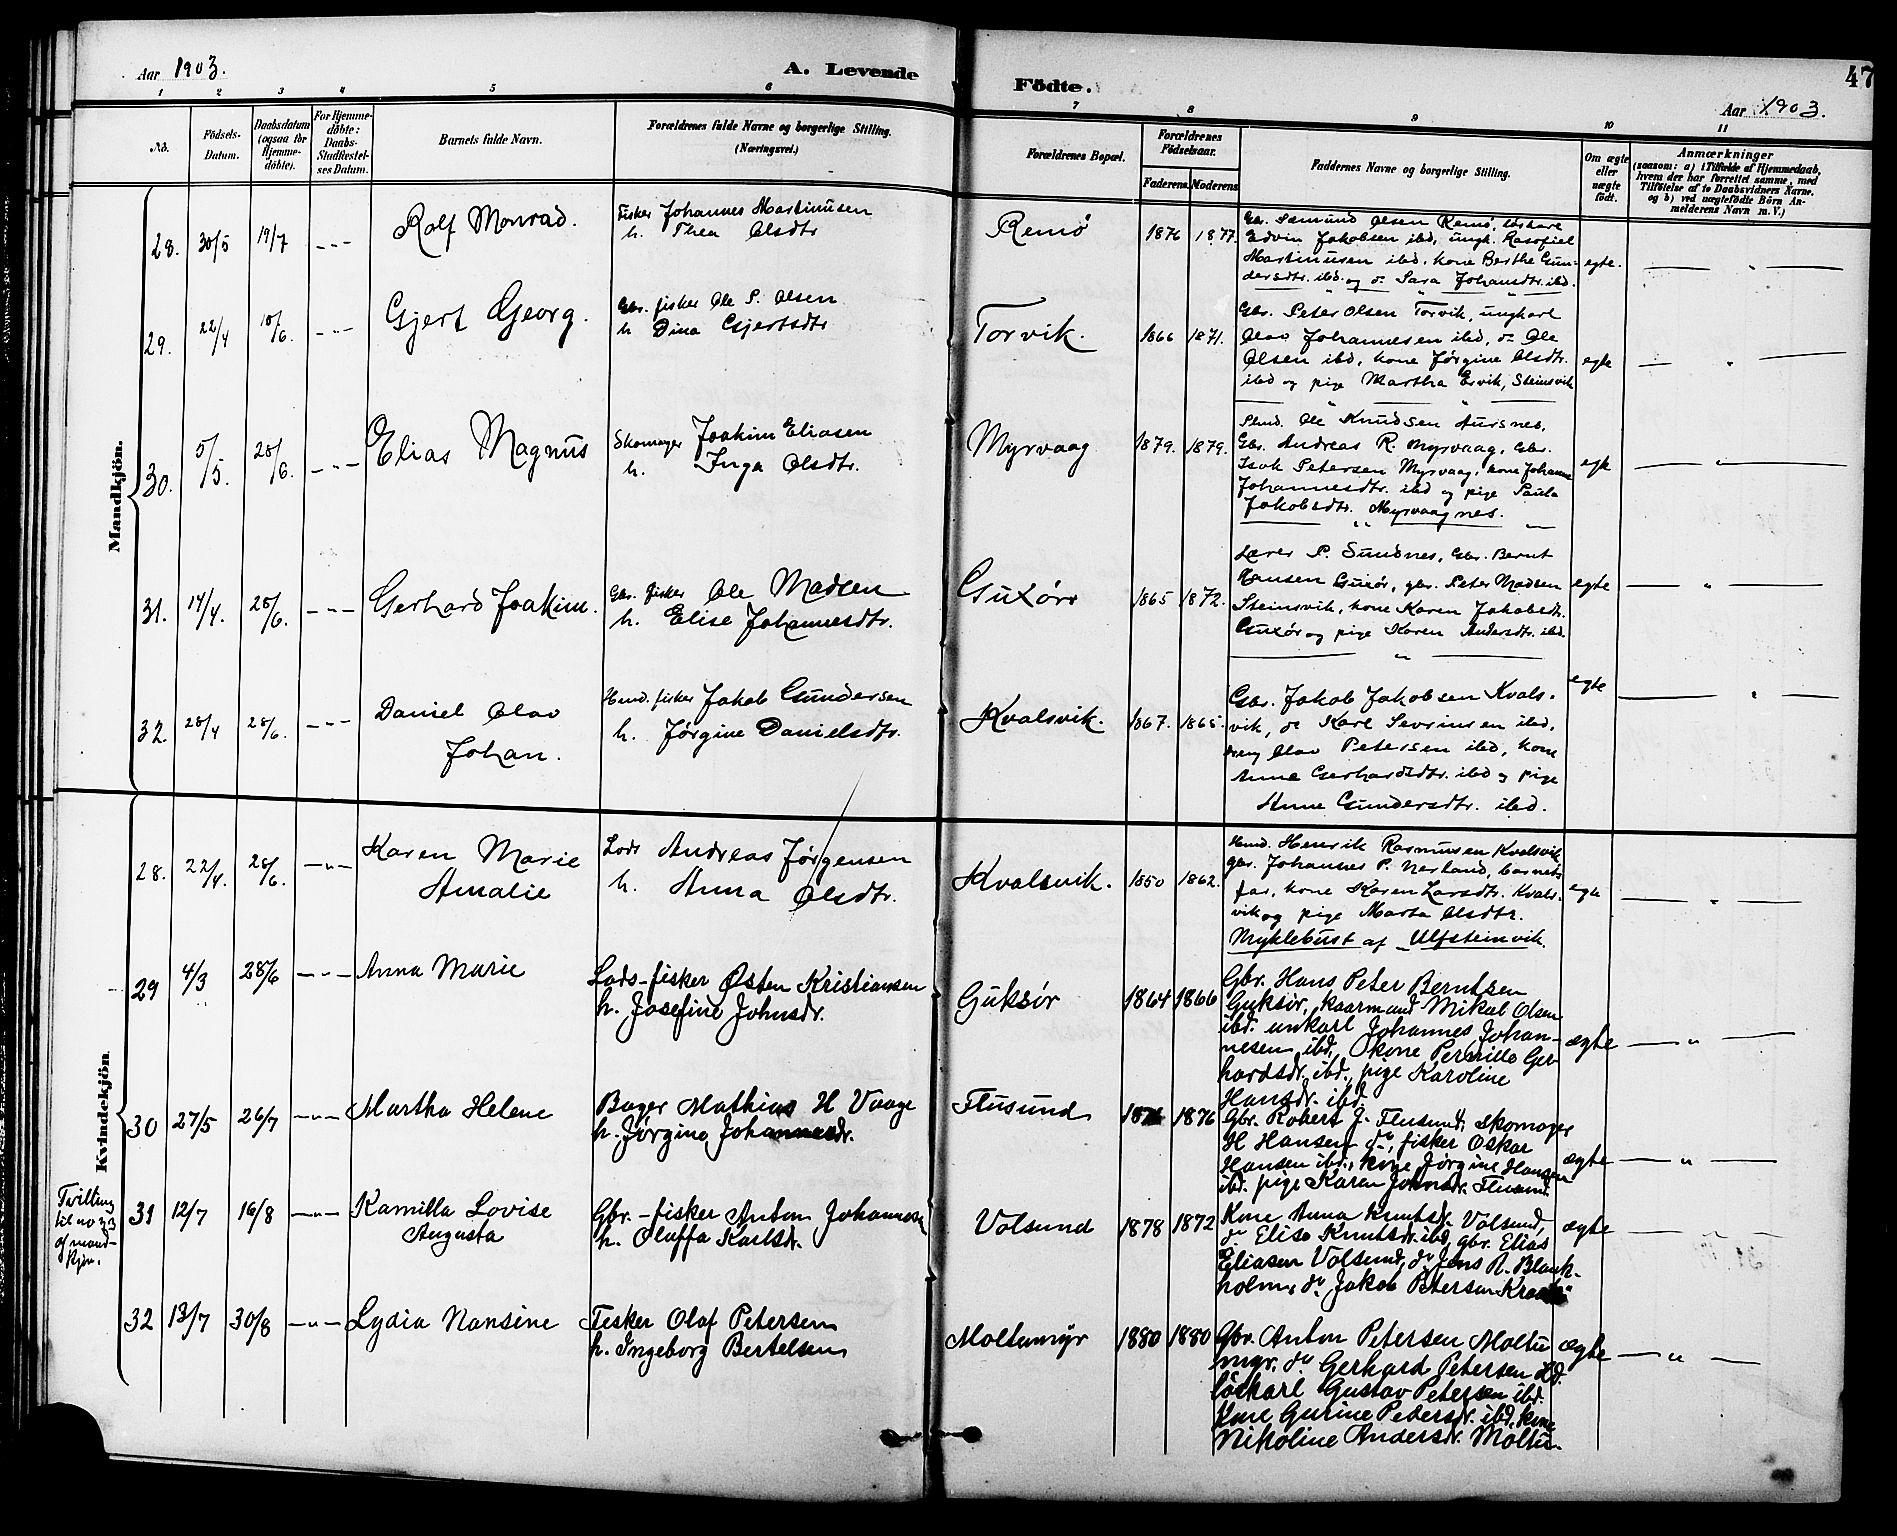 Aar 1903.
A. Levende
Födte.
47
Aar 1903.
1 2 3 4 5 6 7 8 9 10 11
No.
Födsels-
Datum.
Daabsdatum
(ogsaa for
Hjemme-
döbte).
For Hjemme-
döbte:
Daabs-
Stadfæstel-
ses Datum.
Barnets fulde Navn.
Forældrenes fulde Navne og borgerlige Stilling.
(Næringsvei.)
Forældrenes Bopæl.
Forældrenes
Födselsaar.
Faderens. Moderens.
Faddernes Navne og borgerlige Stilling.
Om ægte
eller
uægte
födt.
Anmærkninger
(saasom: a) i Tilfælde af Hjemmedaab,
hvem der har forrettet samme, med
Tilföielse af to Daabsvidners Navne.
og b) ved uægtefödte Börn An-
melderens Navn m. V.)
Mandkjön.
28. 30/5 19/7 - - - Rolf Monrad.
Fisker Johannes Martinusen
h. Thea Olsdtr
Remø 1876 1877.
Gbr. Sæmund Olsen Remø,
Edvin Jakobsen ibd, ungk. Rasofiel
Martinusen ibd. kone Berthe Gun-
dersdtr. ibd. og do Sara Johansdtr. ibd.
egte. — " —
29. 22/4 18/6. - " - Gjert Georg.
Gbr. fisker Ole P. Olsen
h. Dina Gjertsdtr
Torvik. 1866 1871.
Gbr. Peter Olsen Torvik, ungkarl
Olav Johannesen ibd, do Ole
Olsen ibd, kone Jørgine Olsdtr.
ibd og pige Martha Ervik, Steinsvik
egte — " —
30. 5/5. 28/6. - - - Elias Magnus
Skomager Joakim Eliasen
h. Inga Olsdtr.
Myrvaag 1879. 1879.
Ole Knudsen Aursnes,
Gbr. Andreas R. Myrvaag, Gbr.
Isak Petersen Myrvaag, kone Johanne
Johannesdtr. ibd og pige Paula
Jakobsdtr. Myrvaagnes.
egte — " —
31. 14/4. 28/6. - - - Gerhard Joakim.
Gbr. fisker Ole Madsen
h. Elise Johannesdtr.
Guxør 1865 1872.
Lærer P. Sundnes, Gbr. Bernt
Hansen Guxør, gbr. Peter Madsen
Steinsvik, kone Karen Jakobsdtr.
Guxør og pige Karen Andersdtr. ibd.
egte — " —
32. 28/4 28/6. - - - Daniel Olav
Johan.
Husmd. fisker Jakob Gundersen
h. Jørgine Danielsdtr.
Kvalsvik. 1867. 1865.
Gbr. Jakob Jakobsen Kvals-
vik, do Karl Sevrinsen ibd,
dreng Olav Petersen ibd, kone
Anne Gerhardsdtr. ibd og pige
Anne Gundersdtr. ibd.
egte — " —
Kvindekjön.
28. 22/4. 28/6. - " - Karen Marie
Amalie
Lods Andreas Jørgensen
h. Anna Olsdtr.
Kvalsvik. 1850 1862.
Husmd. Henrik Rasmusen Kvalsvik
gbr. Johannes P. Nerland, barnets
far, kone Karen Larsdtr. Kvals-
vik og pige Marta Olsdtr.
Myklebust af Ulfsteinvik.
egte — " —
29 4/3 28/6 - " - Anna Marie
Lods-fisker Østen Kristiansen
h. Josefine Johnsdr.
Guksør 1864 1866
Gbr. Hans Peter Berntsen
Guksør, kaarmand Mikal Olsen
ibd. unkarl Johannes Johan-
nesen ibd, kone Pernille Ger-
hardsdr. ibd., pige Karoline
Hansdr. ibd.
ægte — " —
30 27/5 26/7 - " - Martha Helene
Bager Mathias H Vaage
h. Jørgine Johannesdr.
Flusund 1876
Gbr. Robert J. Flusund, Skomager
H Hansen do, fisker Oskar
Hansen ibd., kone Jørgine Hansen
ibd. pige Karen Johnsdr. Flusund.
ægte — " —
Tvilling
til no 33
af mand-
kjøn.
31 12/7 16/8 - " - Kamilla Lovise
Augusta
Gbr.-fisker Anton Johannesen
h. Oluffa Karlsdr.
Volsund 1878 1872
Kone Anna Knutsdr. Volsund,
do Elise Knutsdr. ibd, gbr. Elias
Eliasen Volsund, do Jens A. Blank-
holm, do Jakob Petersen
ægte — " —
32 13/7 30/8 - " - Lydia Nansine
Fisker Olaf Petersen
h. Ingeborg Bertelsen
Moltumyr 1880 1880
Gbr. Anton Petersen Moltu
myr, do Gerhard Petersen ibd.
löskarl Gustav Petersen ibd.
Kone Gurine Pedersdr. ibd, kone
Nikoline Andersdr. Moltu-
ægte — " —